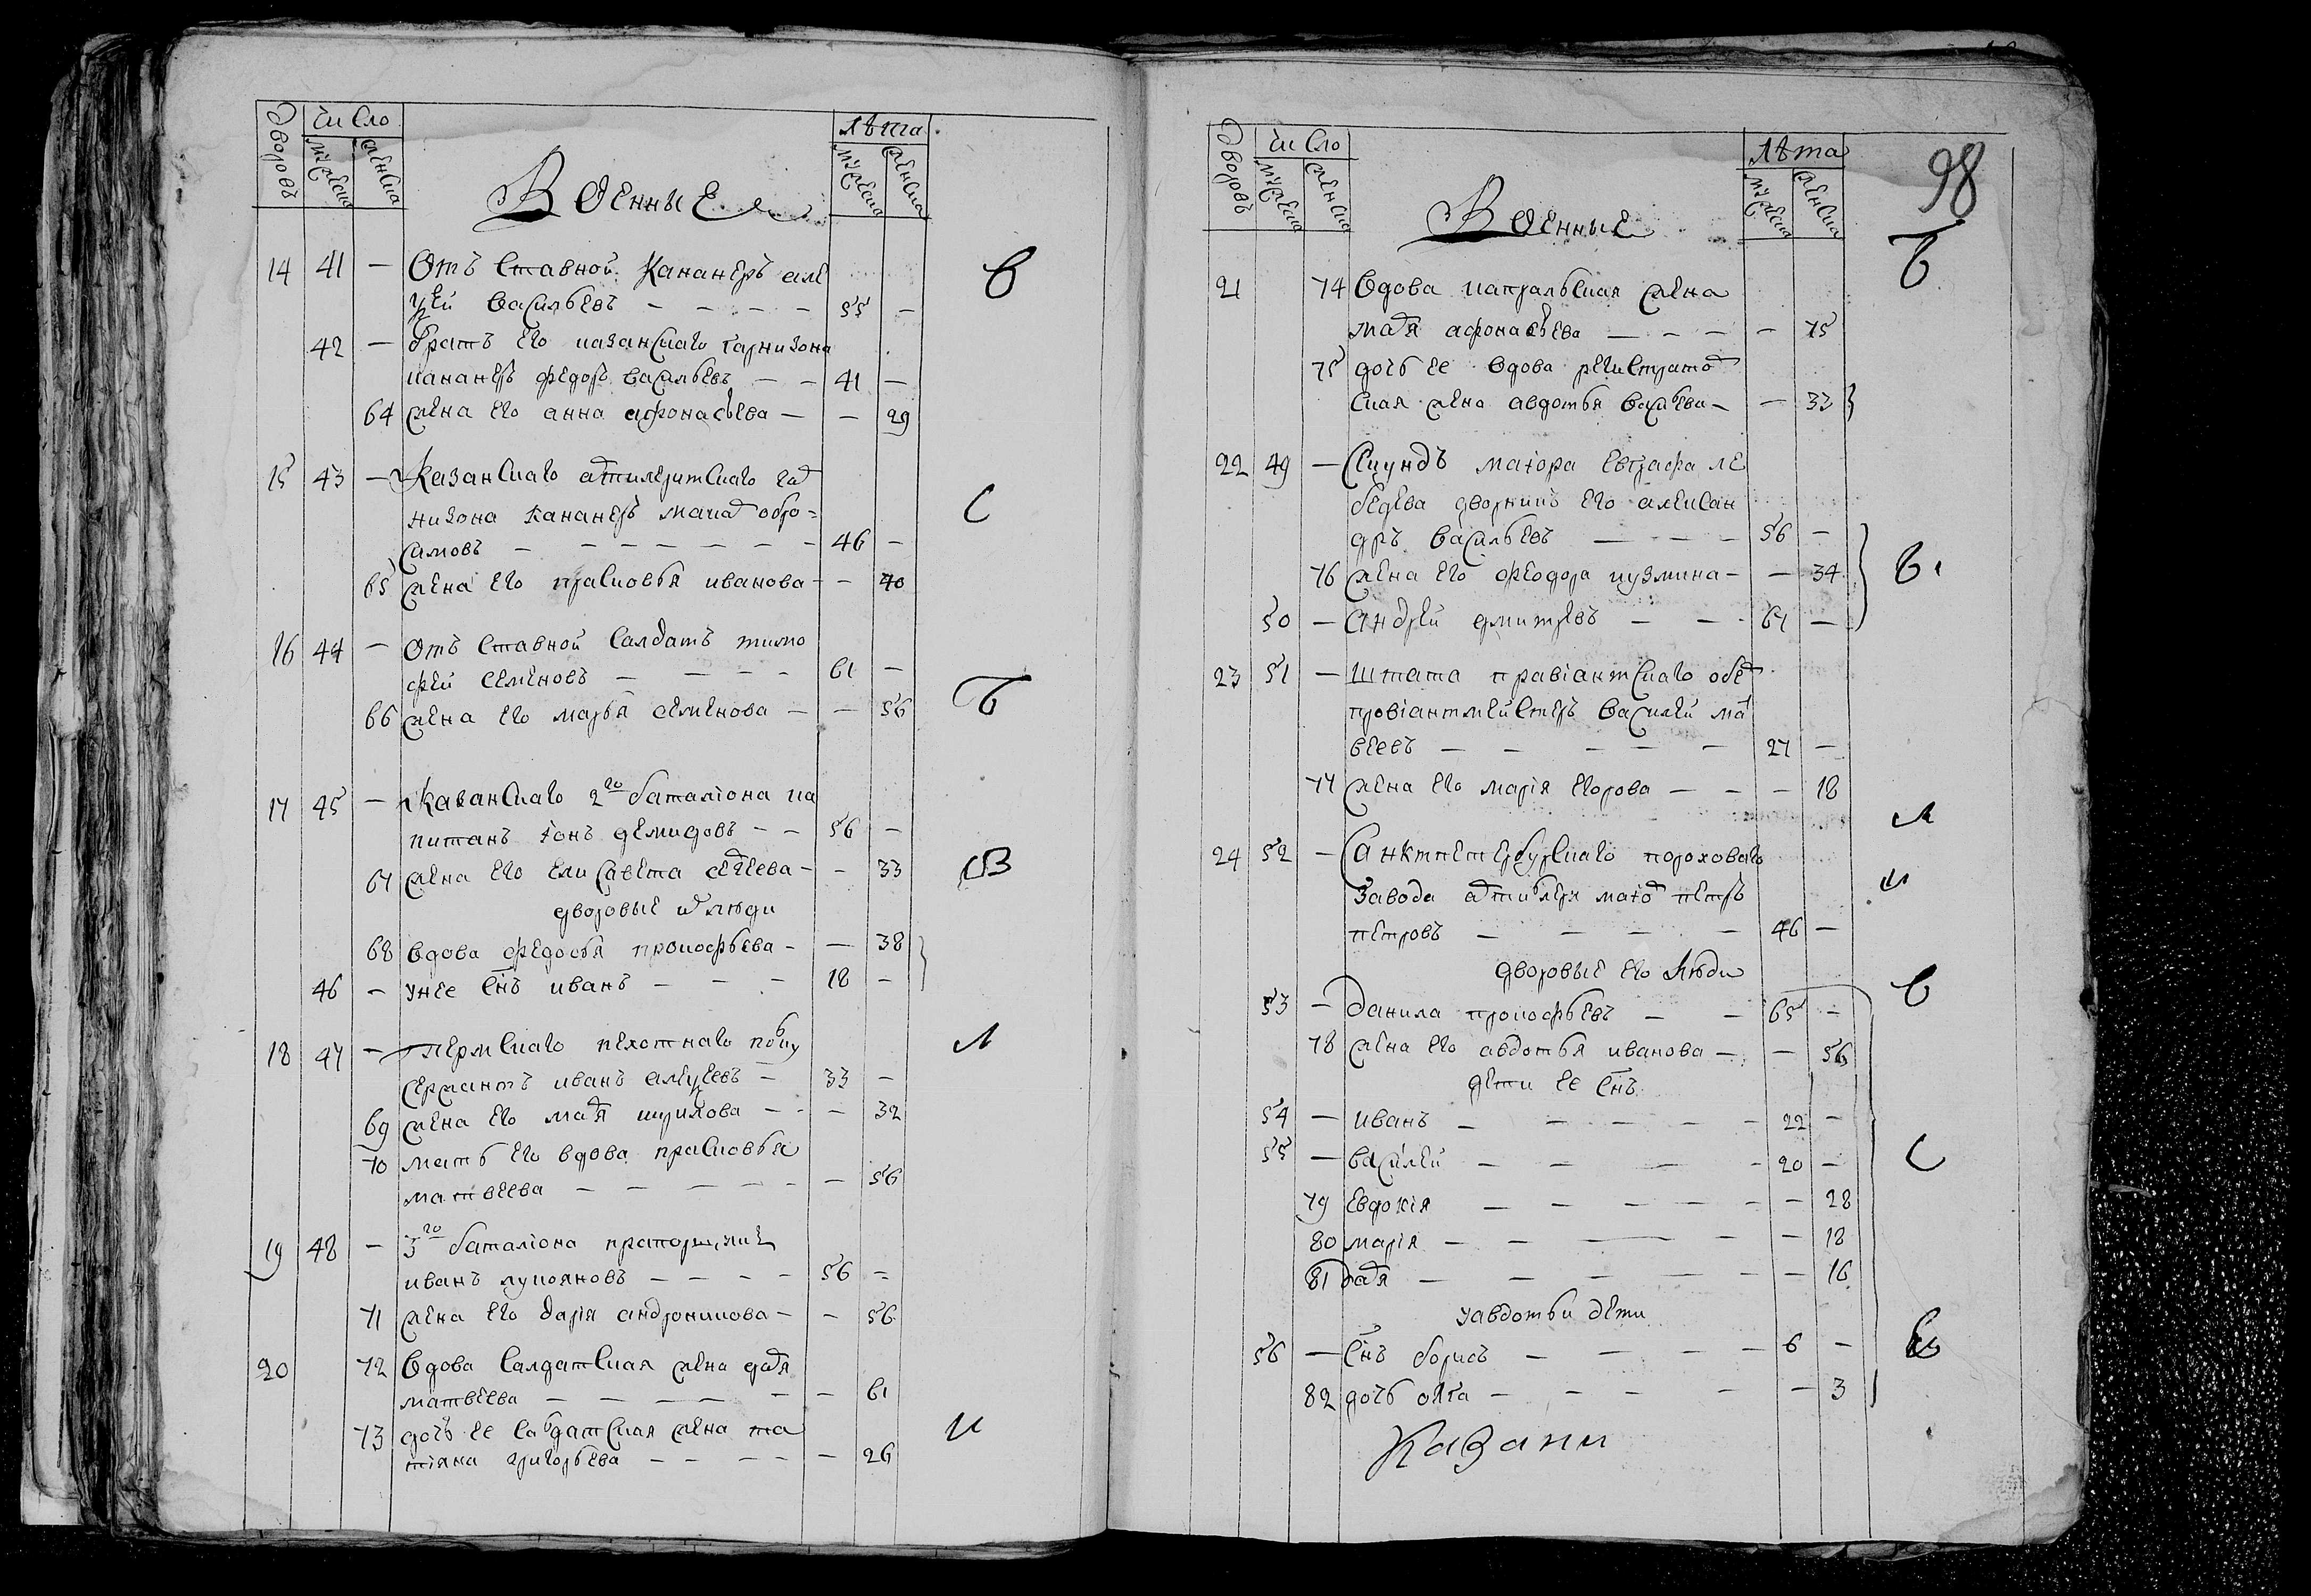 дворовъ число мужеска женска Военные лѣта мужеска женска
14 41 — Отъ ставной Кананеръ але
ѯѣй васильевъ — — — — 55 —
42 — братъ его казанскаго гарнизона
кананеръ федоръ васильевъ — — 41 —
64 жена его анна афонасьева — — 29
15 43 — Казанскаго артилеритскаго гар
низона Кананеръ макаръ обро=
симовъ — — — — — — — 46 —
65 жена его прасковья иванова — — 40
16 44 — Отъ ставной салдатъ тимо
фѣй семеновъ — — — — 61 —
66 жена его марья семенова — — 56
17 45 — Казанскаго 2го баталіона ка
питанъ іонъ демидовъ — — 56 —
67 жена его елисавета сергеева — — 33
дворовые их люди
68 вдова федосья прокофьева — — 38
46 — у нее снъ иванъ — — — 18 —
18 47 — пермскаго пехотнаго полку
сержантъ иванъ алеѯеевъ — 33 —
69 жена его марья ширихова — — — 32
70 мать его вдова прасковья
матвеева — — — — — — 56
19 48 — 3го баталіона прапорщикъ
иванъ лукояновъ — — — — 56 —
71 жена его дарія андроникова — — 56
20 72 вдова салдатская жена дарья
матвеева — — — — — — 61
73 дочь ее салдатская жена та
тіяна григорьева — — — — — 26
98
дворовъ число мужеска женска Военные лѣта мужеска женска
21 74 вдова капральская жена
марья афонасьева — — — — 75
75 дочь ее вдова регистратор
ская жена авдотья васильева — — 33
22 49 — Секундъ маіора евграфа ле
бедева дворникъ его алексан
дръ васильевъ — — — 56 —
76 жена его феодора кузмина — — 34
50 — андрей дмитревъ — — 67 —
23 51 — Штата правіантскаго обер
провіантмейстеръ василей мат
веевъ — — — — — 27 —
77 жена его марія егорова — — — 18
24 52 — Санктпетербурскаго пороховаго
завода артилеріи маіор петръ
петровъ — — — — 46 —
дворовые его люди
53 — данила прокофьевъ — — 65 —
78 жена его авдотья иванова — — 56
дети ее снъ
54 — иванъ — — — — — 22 —
55 — василей — — — — 20 —
79 евдокія — — — — — — 28
80 марія — — — — — — 18
81 дарья — — — — — — 16
у авдотьи дети
56 — снъ борисъ — — — — 6 —
82 дочь олга — — — — — 3
Казани